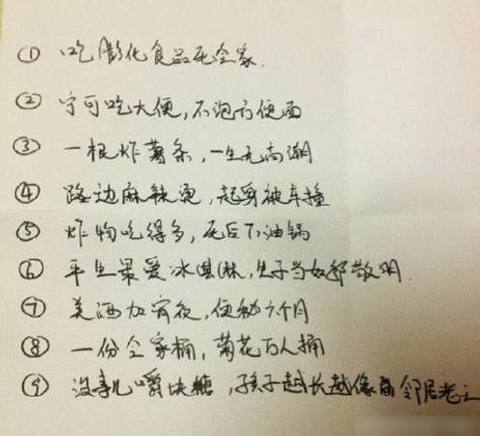 ① 吃膨化食品死全家.
② 宁可吃大便，不泡方便面
③ 一根炸薯条，一生无高潮
④ 路边麻辣烫，起身被车撞
⑤ 炸物吃得多，死后下油锅
⑥ 平生最爱冰淇淋，生子当如郭敬明.
⑦ 美酒加宵夜，便秘六个月
⑧ 一份全家桶，菊花万人捅
⑨ 没事儿嚼块糖，孩子越长越像隔邻居老王